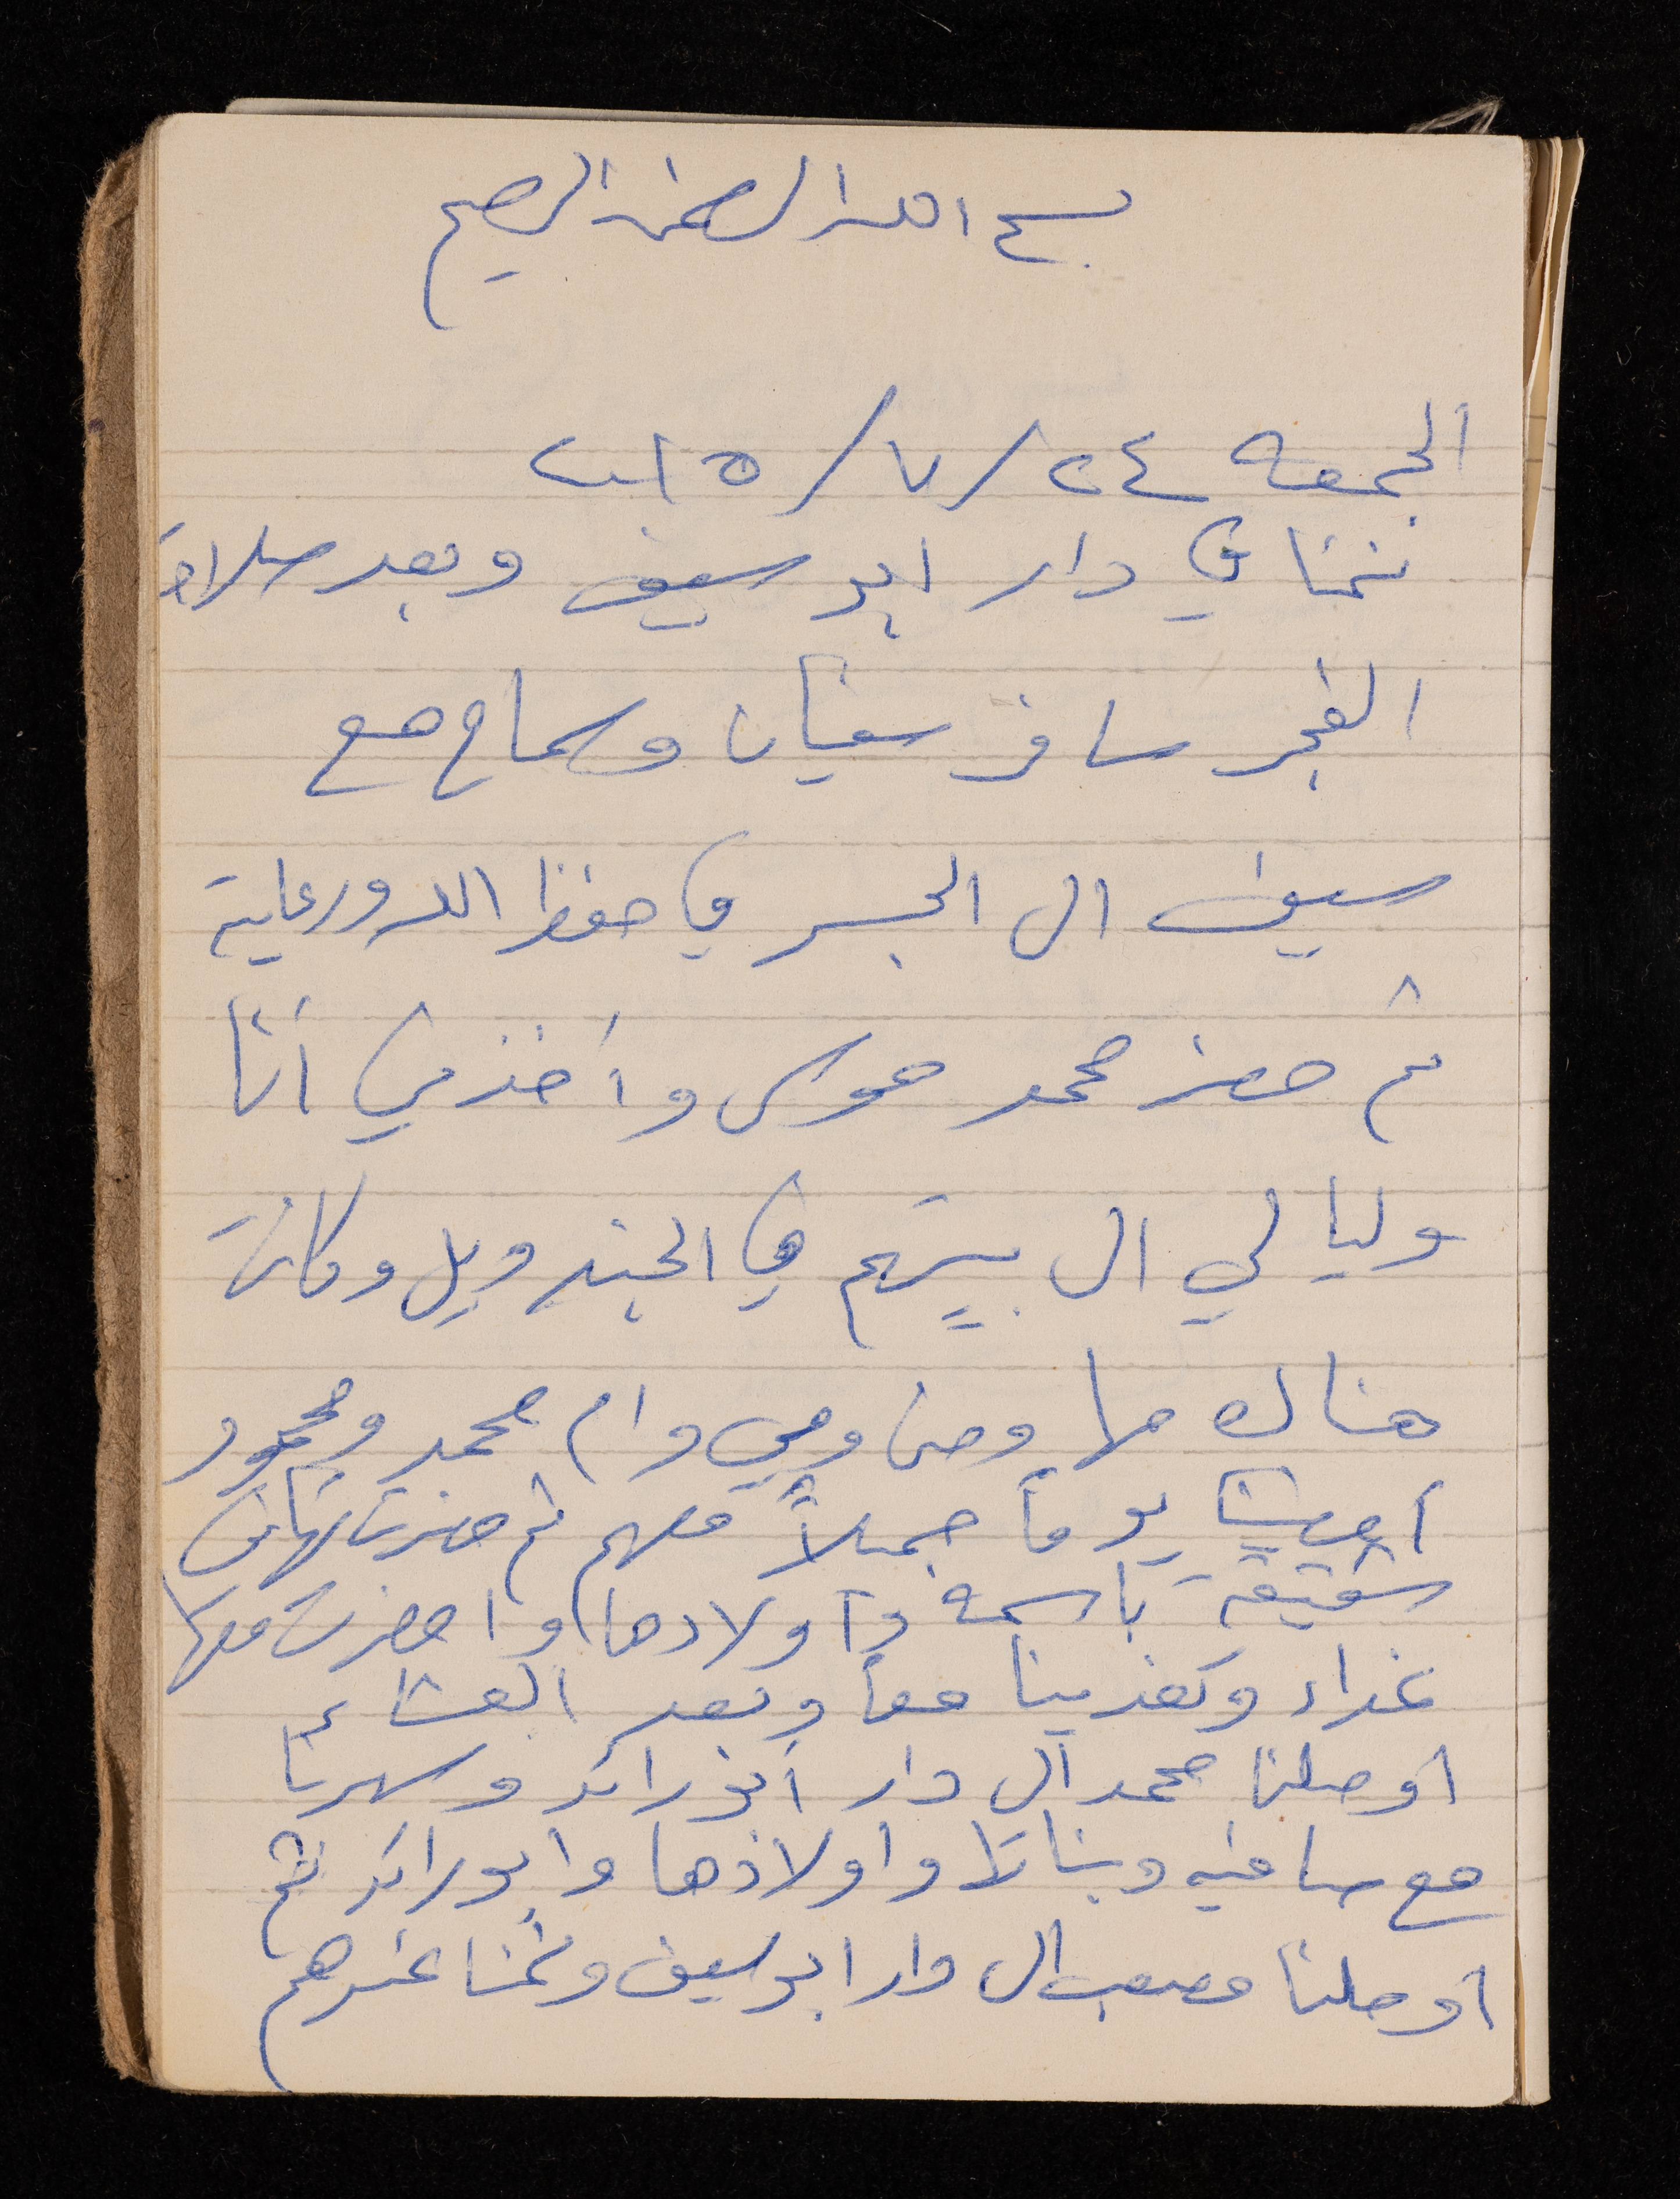 بسم الله الرحمن الرحيم
الجمعه ٢٤/٧/٢٠١٥
نمنا في دار ابو سيف وبعد صلاة
الفجر سافر سفيان وسماح مع
سيف الى الجسر في حفظ الله ورعايته
ثم حضر محمد هوش وأخذني أنا
وليالي الى بيتهم في الجندويل وكانت
هناك مها ومنى ومي وام محمد ومحمود
أمضينا يوماً جميلاً معهم ثم حضرت تهاني
شقيقة باسمه وأولادها واحضرت معها
غداء وتغدينا معاً وبعد العشاء
أوصلنا محمد الى دار أبو رائد وسهرنا
مع صافيه وبناتها وأولادها وابو رائد ثم
أوصلنا مصعب الى دار ابو سيف ونمنا عندهم